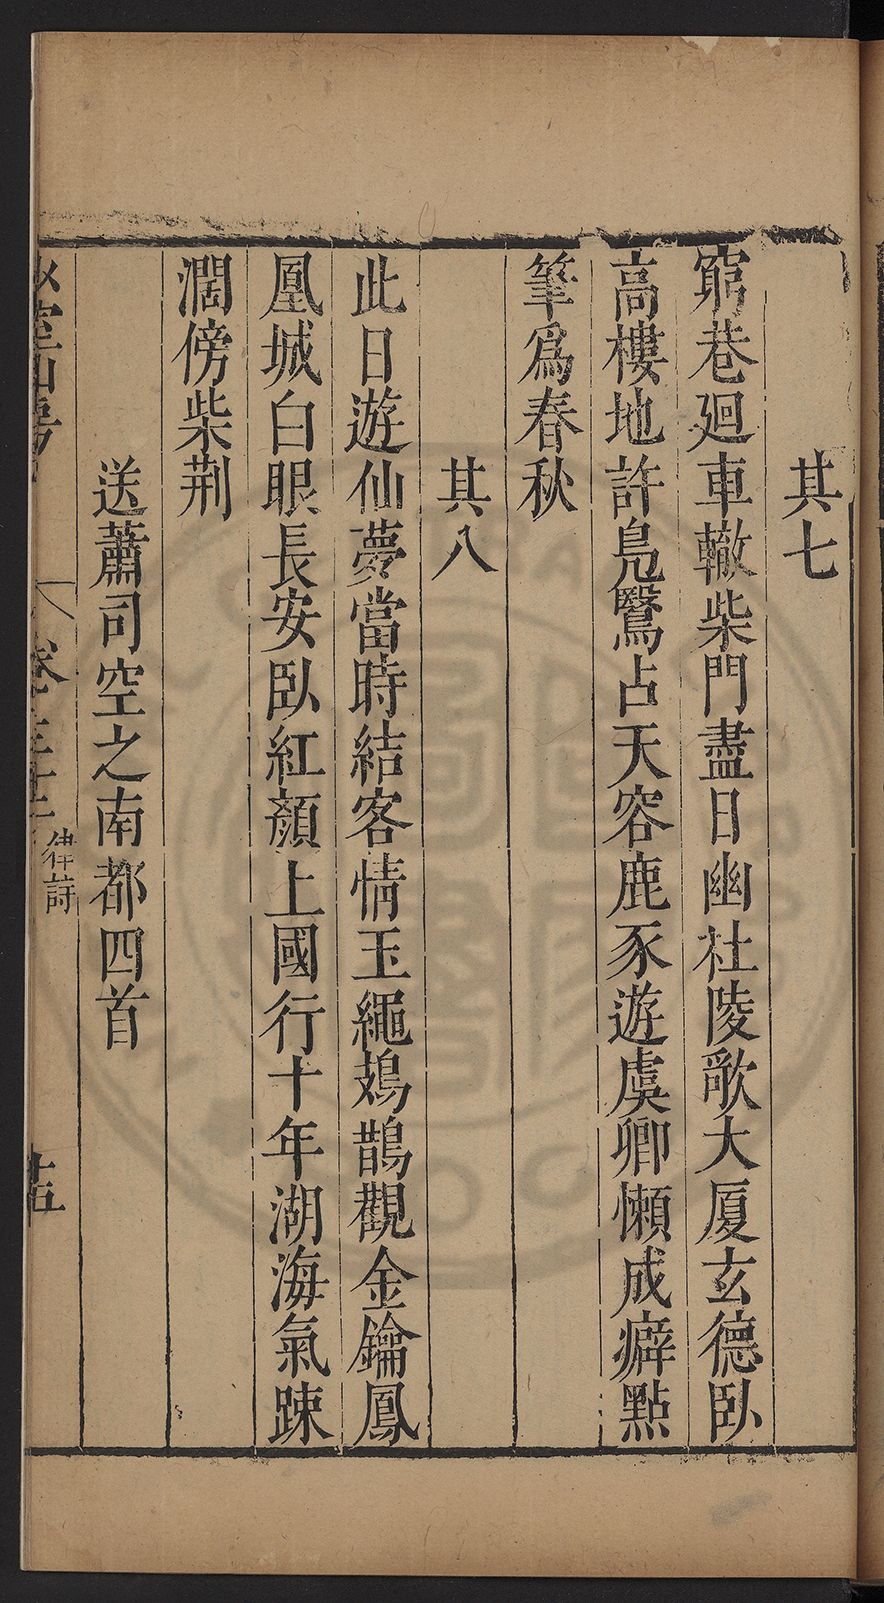 其七
窮巷廻車轍柴門盡日幽杜陵歌大厦玄德臥
高樓地許鳬鷖占天容鹿豕遊虞卿懶成癖點
筆爲春秋
其八
此日遊仙夢當時結客情玉繩鳷鵲觀金鑰鳳
凰城白眼長安臥紅顏上國行十年湖海氣踈
濶傍柴荆
送蕭司空之南都四首
室山房
律詩
十五